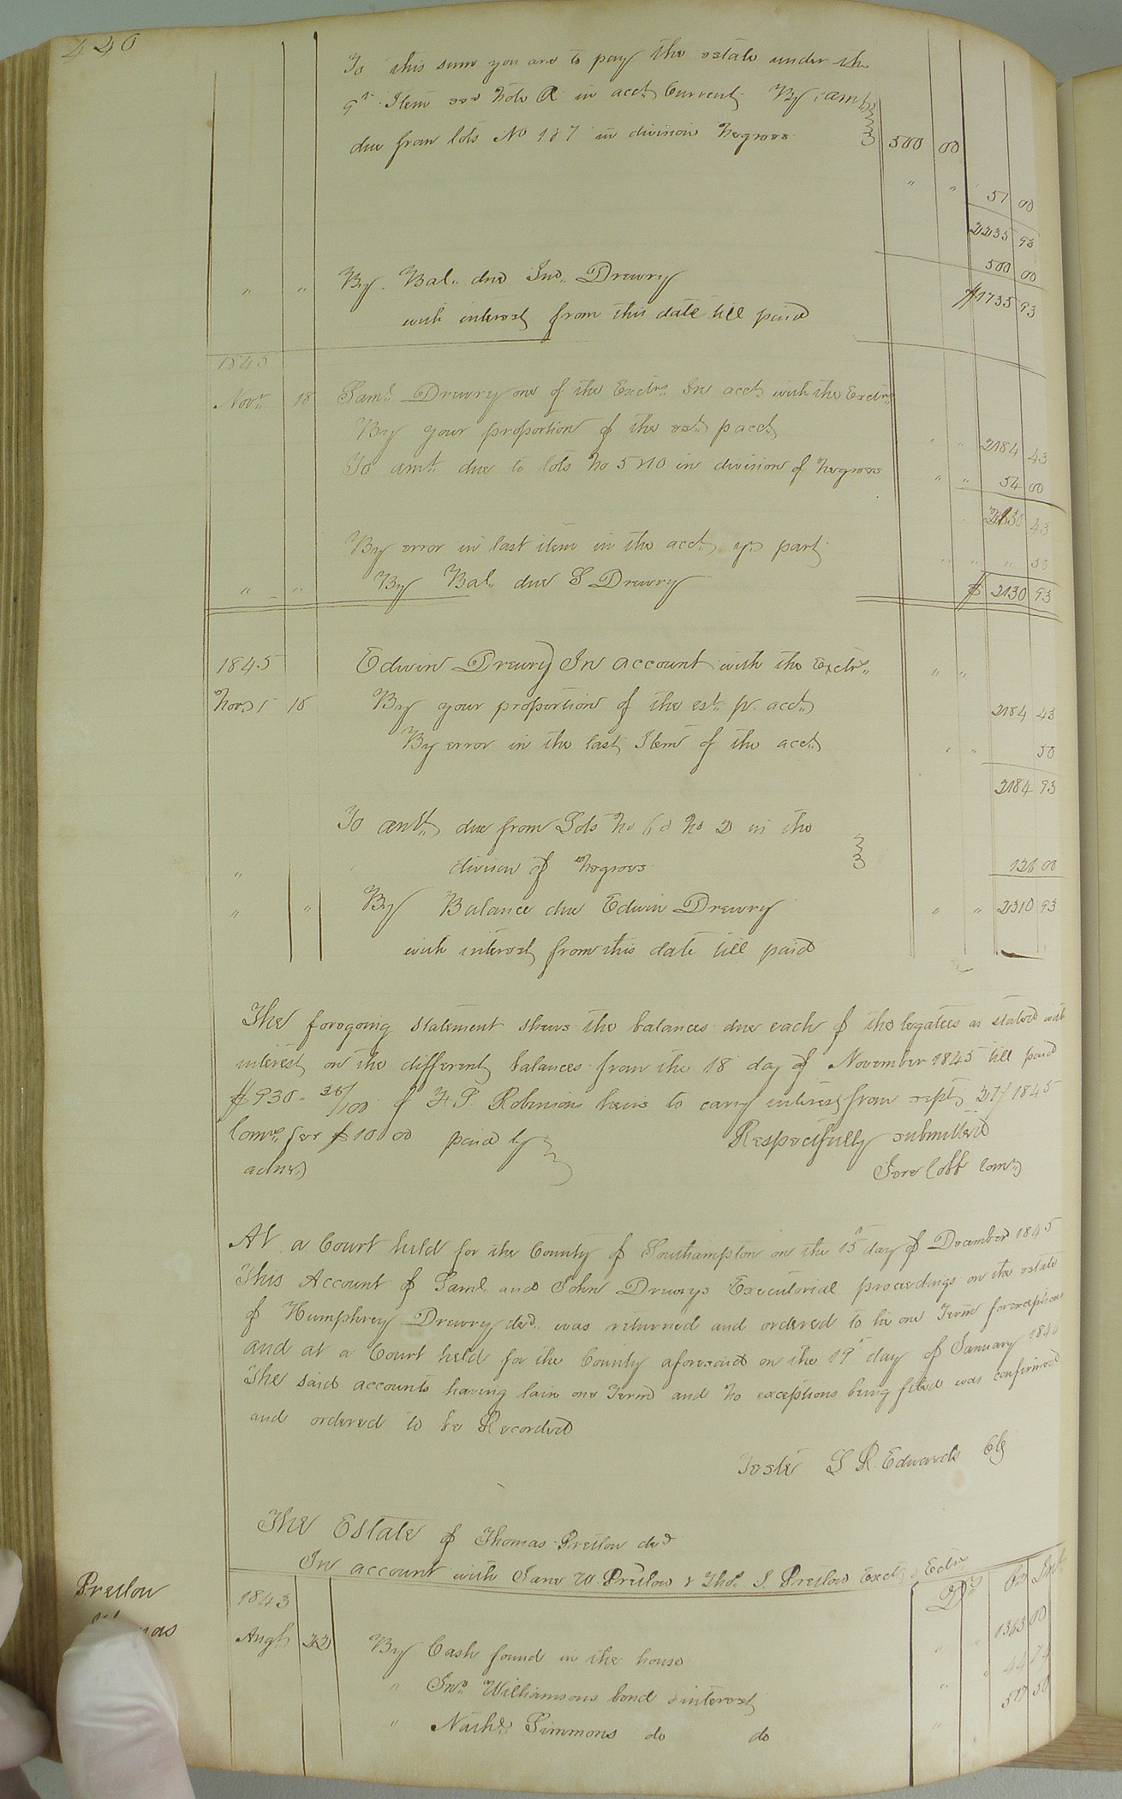 440
To this sum you are to pay the estate under the
9th Item see Note A in acct Current By amt
due from lots No 1 & 7 in division Negroes 500 00
" " 51 00
2235 93
500 00
" " By Bal. due Jno. Drewry $1735 93
with interest from this date till paid
1845
Novr. 18 Saml. Drewry one of the Exctrs In acct with the Exctrs
By your proportion of the est. p acct " " 2184 43
To amt due to lots No 5 & 10 in division of Negroes " " 54 00
43
By error in last item in the acct pr part " " " 50
" " By Bal. due S Drewry $ 2130 93
1845 Edwin Drewry In account with the Exctr. " "
Novr 18 By your proportion of the est. pr. acct. 2184 43
By error in the last Item of the acct " " 50
2184 93
To amt. due from Lots No 6 & No 2 in the
" division of Negroes 126 00
" " By Balance due Edwin Drewry " " 2310 93
with interest from this date till paid
The foregoing statement shews the balances due each of the legatees as stated with
interest on the different balances from the 18 day of November 1845 till paid
$930. 36/100 of Robinsons heirs to carry interest from sept. 27/ 1845
Comrs. fee $10 00 paid by Respectfully submitted
Cobb Comr.
At a Court held for the County of Southampton on the 15th day of December 1845
This Account of Saml. and John Drewrys Executorial proceedings on the estate
of Humphrey Drewry decd. was returned and ordered to lie one Term for exceptions
and at a Court held for the County aforesaid on the 19th day of January 1846
The said accounts having lain one Term and No exceptions being filed was confirmed
and ordered to be Recorded
Teste L R Edwards Clk
The Estate of Thomas Pretlow decd
In account with Jane W. Pretlow & Thos. J. Pretlow Exctr & Ectrx
Pretlow
1843 Dr Cr
Augt 22 By Cash found in the house " 1363 00
" Jno. Williamsons bond & interest " " 44 74
" Nathl. Simmons do do " 517 50